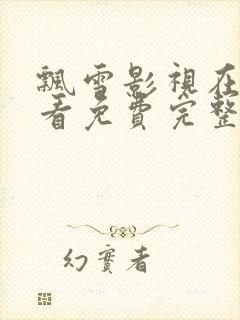 飄雪影視在
看免費完整
幻實者